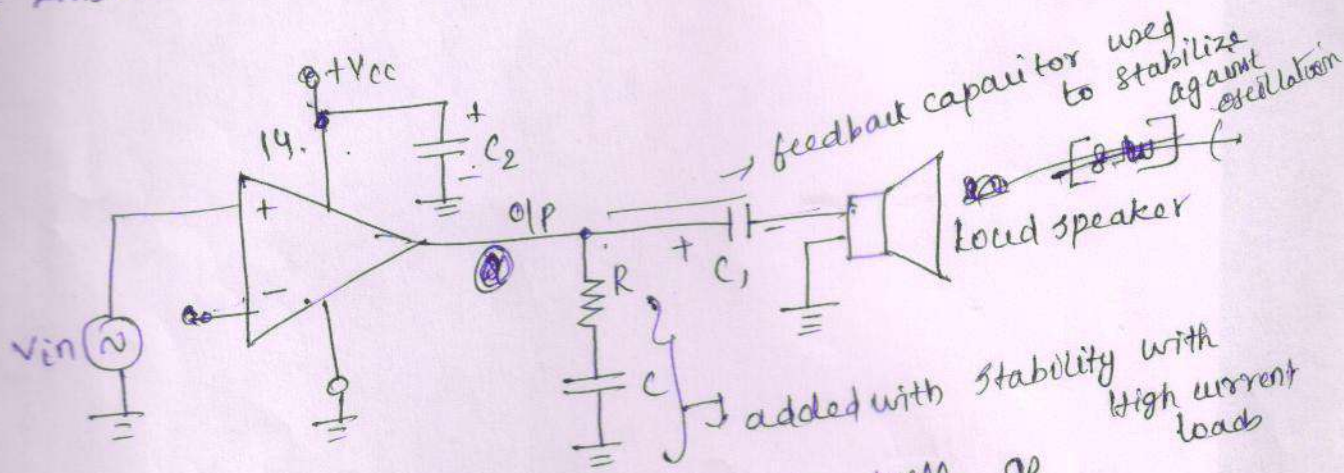 +Vcc
14.
+
C2
-
feedback capacitor used
to stabilize
against
oscillation
+
-
O/P
R
+
C1
-
Loud speaker
Vin
C
added with stability with
High current
loads